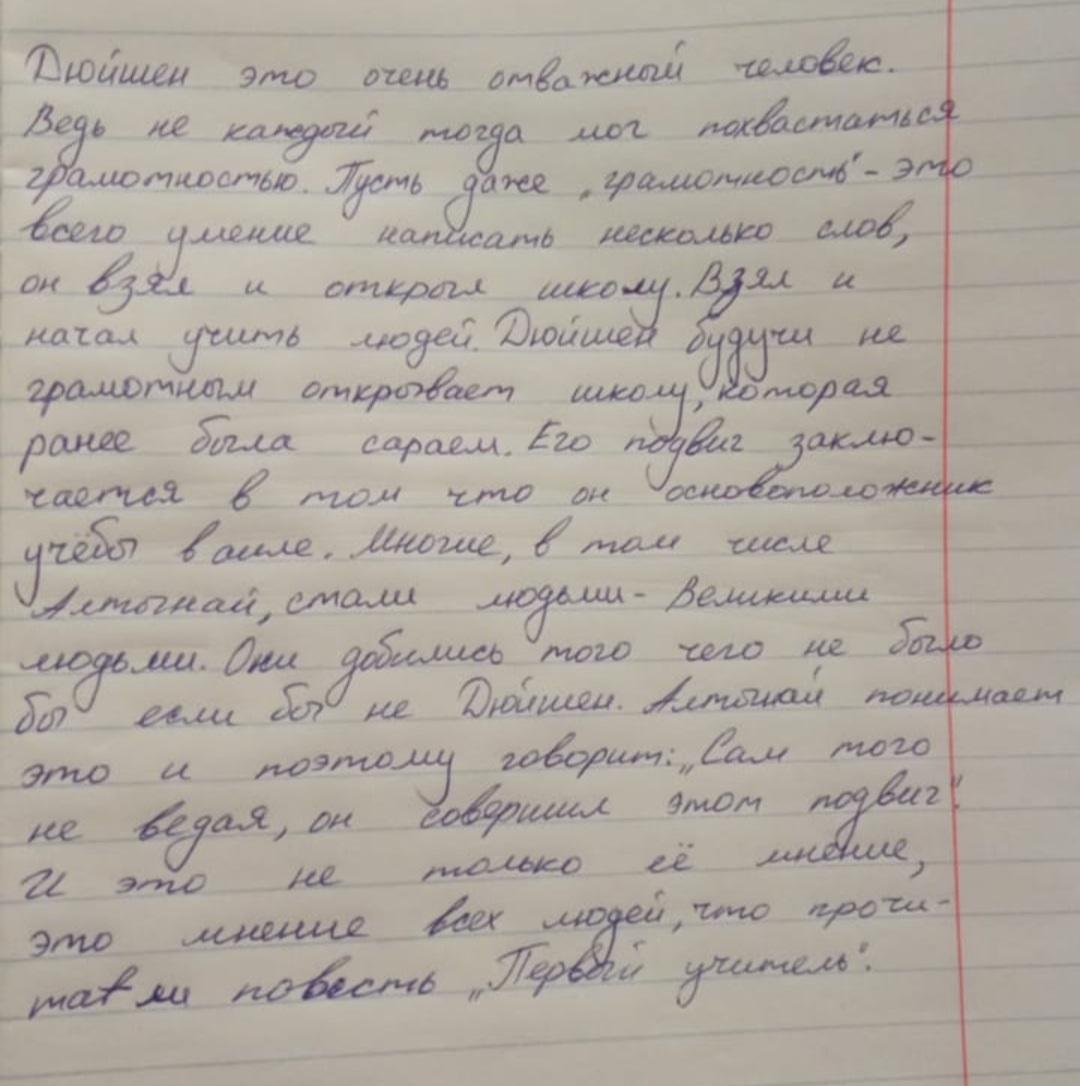 Дюйшен это очень отважный человек.
Ведь не каждый тогда мог похвастаться
грамотностью. Пусть даже „грамотность" - это
всего умение написать несколько слов,
он взял и открыл школу. Взял и
начал учить людей. Дюйшен будучи не
грамотным открывает школу, которая
ранее была сараем. Его подвиг заклю-
чается в том что он основоположник
учёбы в аиле. Многие, в том числе
Алтынай, стали людьми - Великими
людьми. Они добились того чего не было
бы если бы не Дюйшен. Алтынай понимает
это и поэтому говорит: „Сам того
не ведая, он совершил этот подвиг".
И это не только её мнение,
это мнение всех людей, что прочи-
тали повесть „Первый учитель".